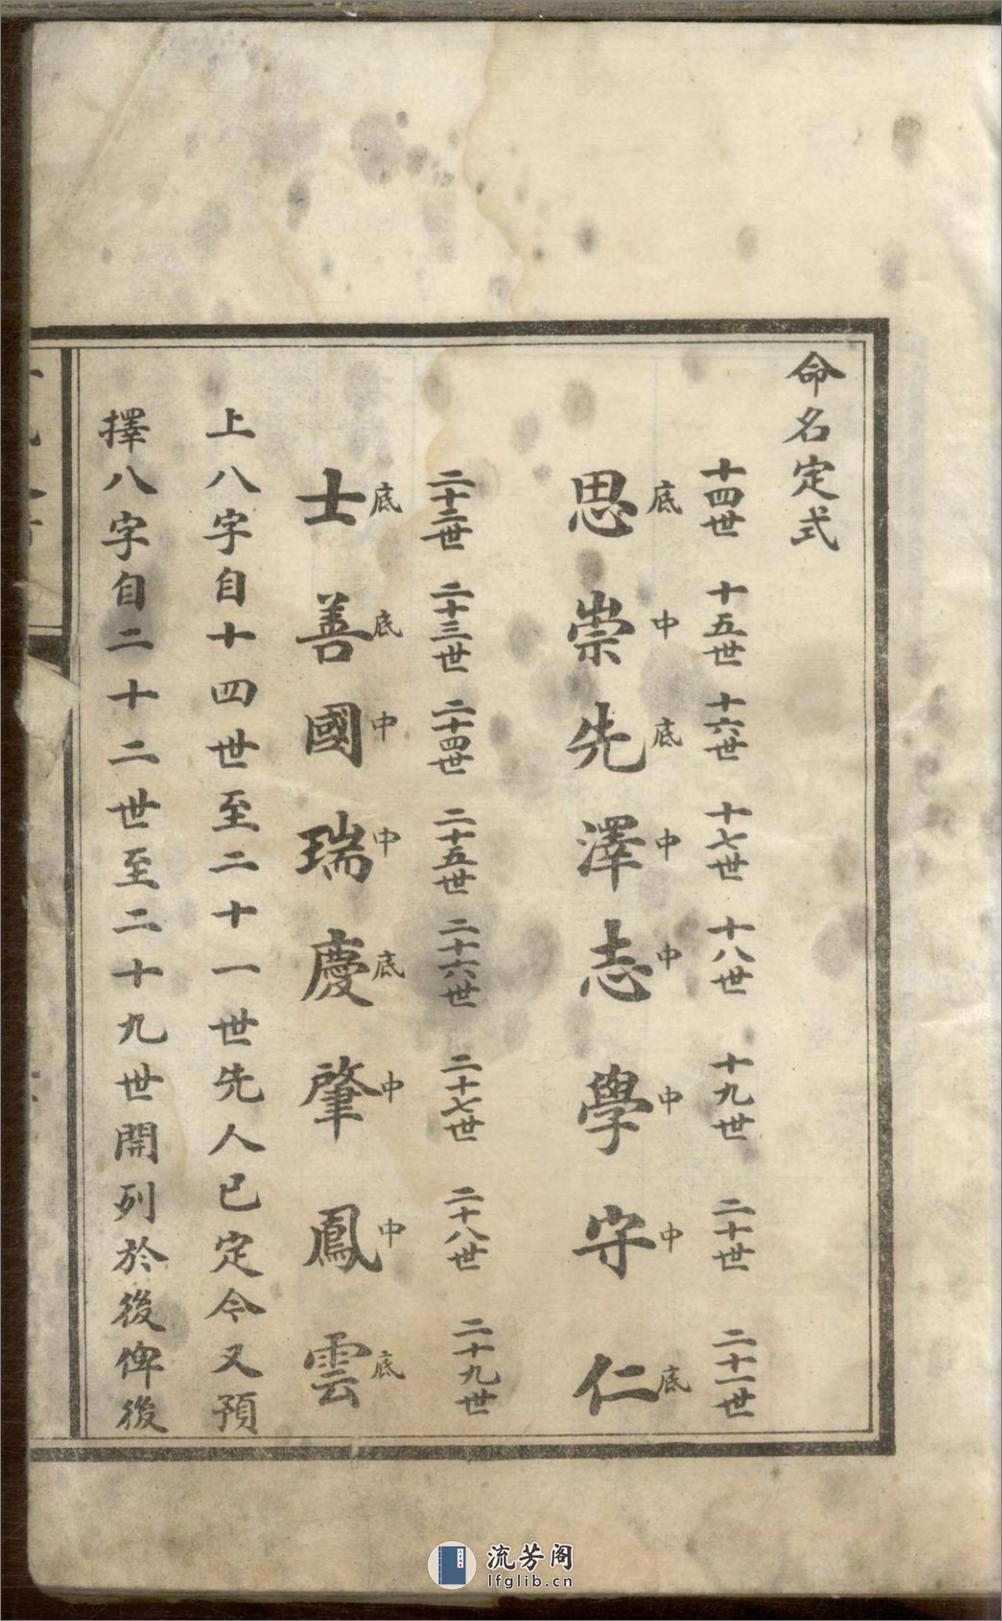 命名定式
十四世 十五世 十六世 十七世 十八世 十九世 二十世 二十一世
底 中 底 中 中 中 中 底
思崇先澤志學守仁
二十二世 二十三世 二十四世 二十五世 二十六世 二十七世 二十八世 二十九世
底 底 中 中 底 中 中 底
士善國瑞慶肇鳳雲
上八字自十四世至二十一世先人已定今又預
擇八字自二十二世至二十九世開列於後俾後
流芳阁
lfglib.cn